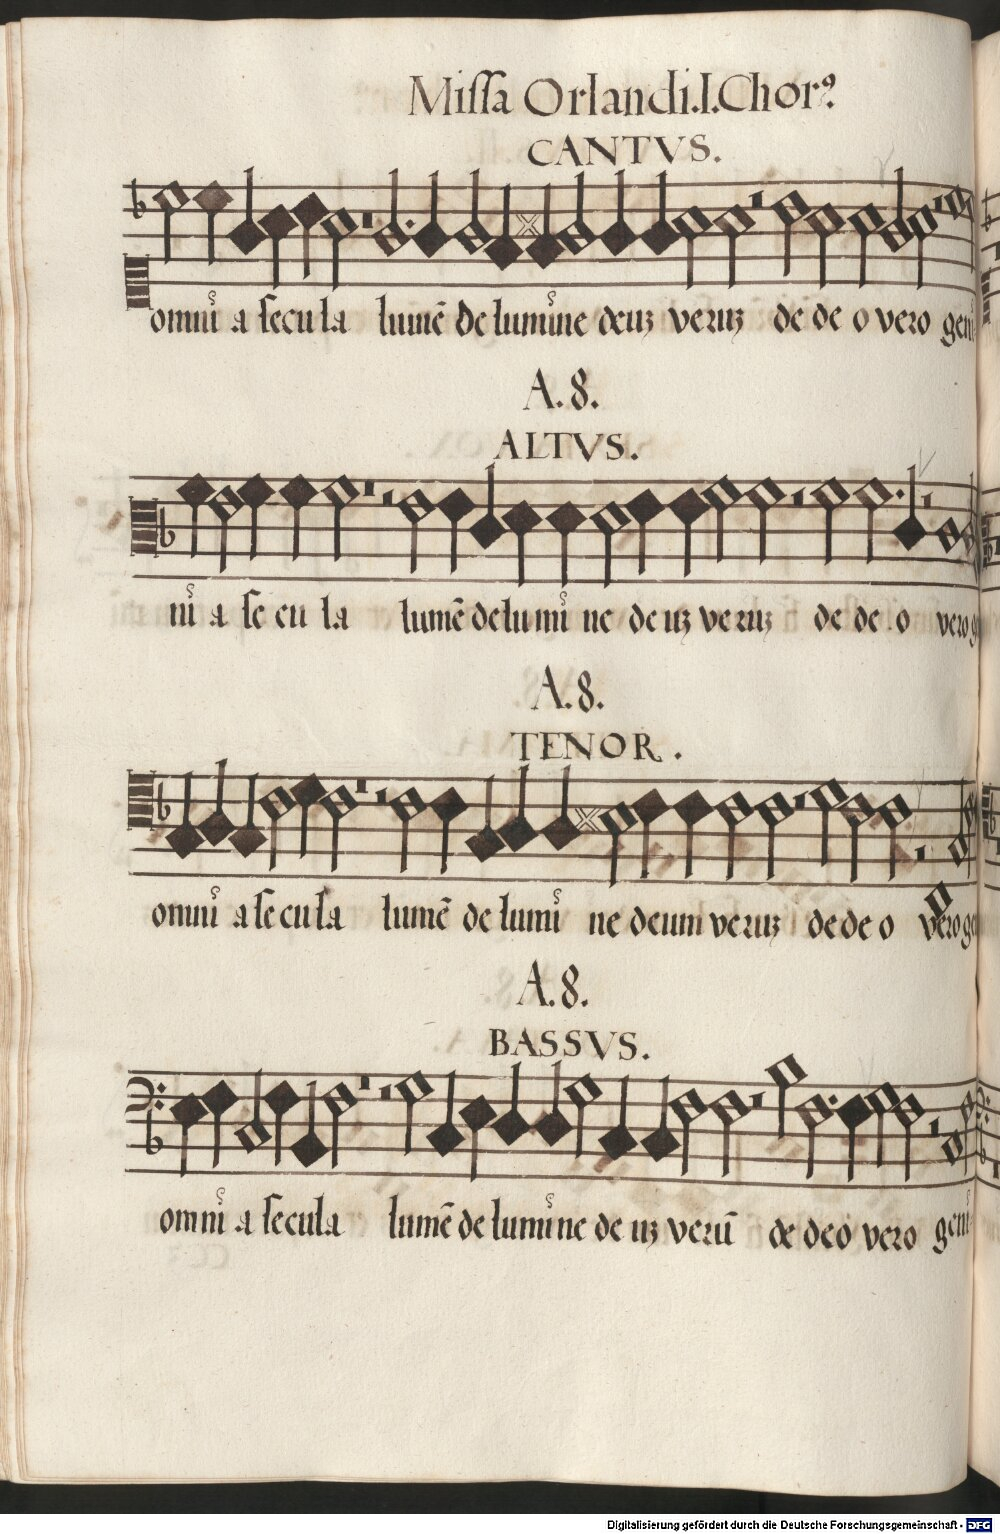 Missa Orlandi.I.Chorꝰ
CANTVS.
omniũ a secu la lumẽ de lumine deuꝫ veruꝫ de de o vero geni
A. 8.
ALTVS.
niũ a se cu la lumẽ de lumi ne de uꝫ ve ruꝫ de de o vero g
A. 8.
TENOR.
omniũ a se cu la lumẽ de lumi ne deum veruꝫ de de o vero ge
A. 8.
BASSVS.
omniũ a secula lumẽ de lumine de uꝫ verũ de deo vero geni
Digitalisierung gefördert durch die Deutsche Forschungsgemeinschaft - DFG